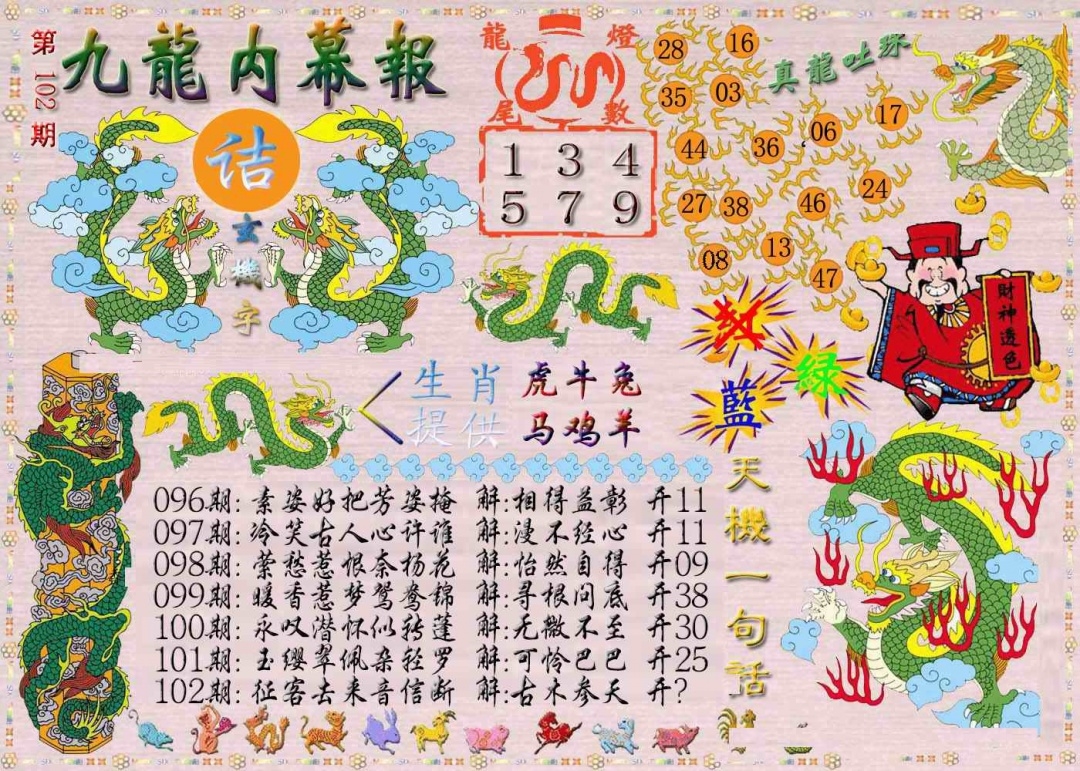 第102期
九龍内幕報
诘
玄機字
龍燈
尾數
1 3 4
5 7 9
真龍吐珠
28 16
35 03
44 36 06 17
27 38 46 24
08 13 47
財神透色
红
绿
藍
生肖提供
虎牛兔
马鸡羊
096期:素姿好把芳姿掩 解:相得益彰 开11
097期:冷笑古人心许谁 解:漫不经心 开11
098期:萦愁惹恨奈杨花 解:怡然自得 开09
099期:暖香惹梦鸳鸯锦 解:寻根问底 开38
100期:永叹潜怀似转蓬 解:无微不至 开30
101期:玉缨翠佩杂轻罗 解:可怜巴巴 开25
102期:征客去来音信断 解:古木参天 开?
天機一句话